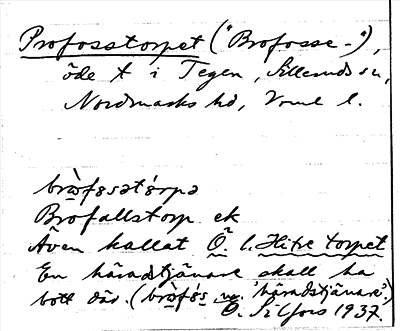 Profosstorpet ("Brofosse-"),
öde t i Tegen, Silleruds sn,
Nordmarks hd, Vrml l.
brò̤fɷsətɷ́rpə
Brofallstorp ek
Även kallat Ö. l. Hitre torpet
En häradstjänare skall ha
bott där. (brò̤fɷ́s m. 'häradstjänare'.)
Ö. Silfors 1937.